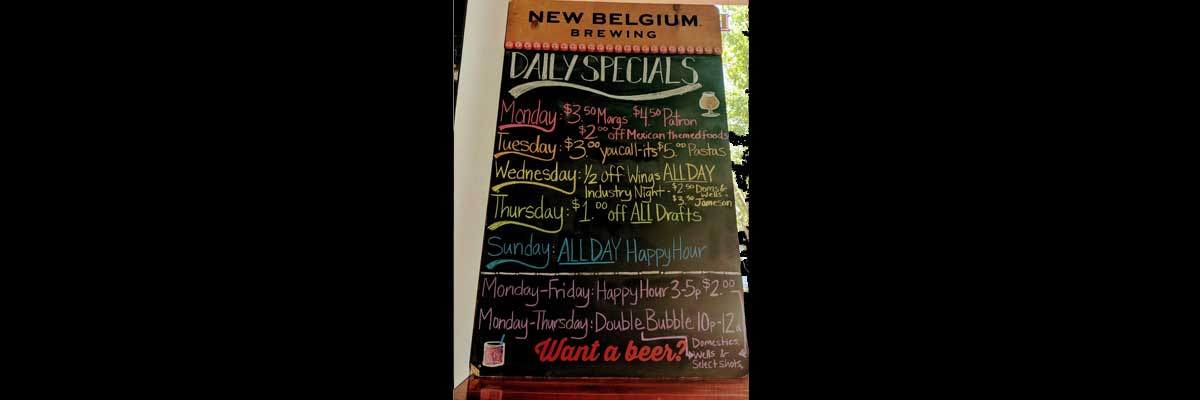 NEW BELGIUM
BREWING
DAILY SPECIALS
Monday: $3.50 Margs $4.50 Patron
$2.00 off Mexican themed foods
Tuesday: $3.00 you call-its $5.00 Pastas
Wednesday: 1/2 off Wings ALL DAY
Industry Night - $2.50 Doms & Wells
$3.50 Jameson
Thursday: $1.00 off ALL Drafts
Sunday: ALL DAY Happy Hour
Monday-Friday: Happy Hour 3-5p $2.00
Monday-Thursday: Double Bubble 10p-12a
Want a beer?
Domestics,
Wells &
Select Shots